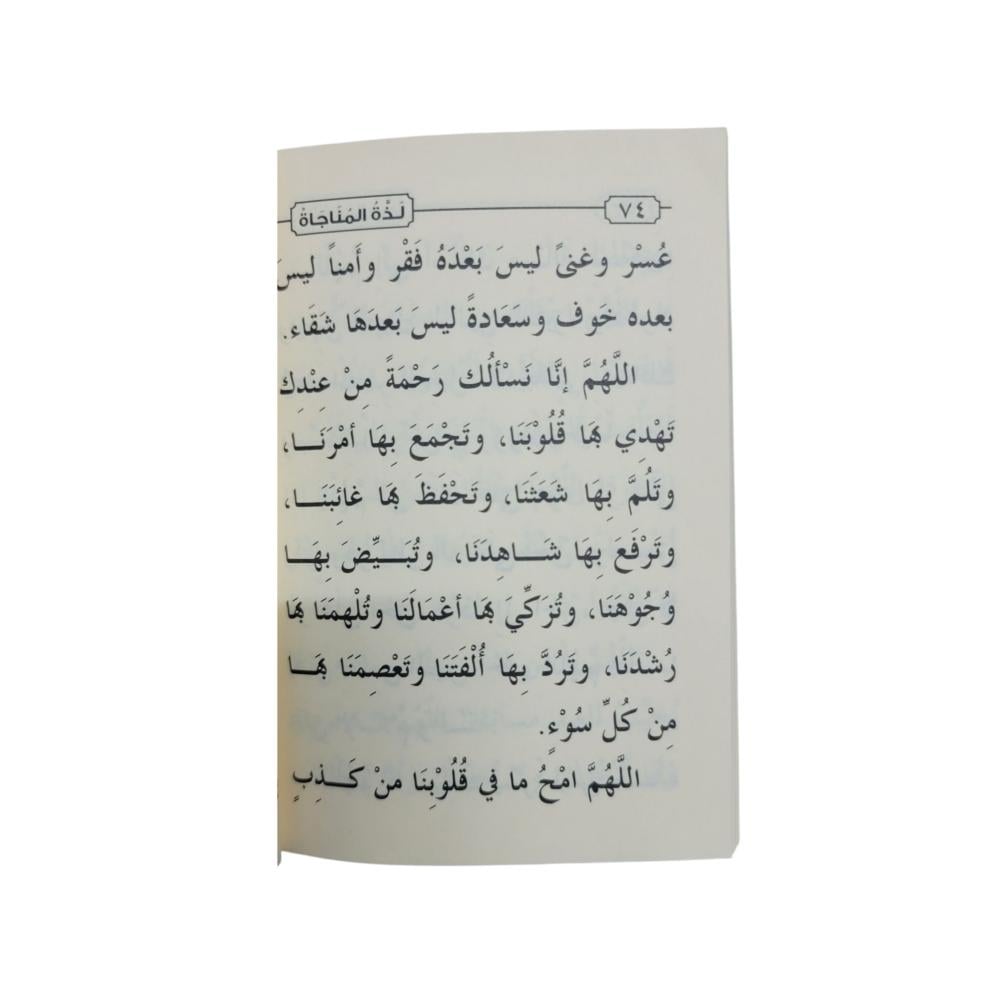 ٧٤
لَذَّةُ المُنَاجَاةْ
عُسْر وغنىً ليسَ بَعْدَهُ فَقْر وأَمناً ليسَ
بعده خَوف وسَعَادةً ليسَ بَعدَهَا شَقَاء.
اللَّهُمَّ إنَّا نَسْألُك رَحْمَةً مِنْ عِنْدِك
تَهْدِي بهَا قُلُوْبَنَا، وتَجْمَعَ بِهَا أمْرَنَـا،
وتَلُمَّ بِهَا شَعَثَنَا، وتَحْفَظَ بهَا غائِبَنَـــا،
وتَرْفَعَ بِهَا شَـــاهِدَنَا، وتُبَـــيِّضَ بِهَـــا
وُجُوْهَنَا، وتُزَكِّيَ بهَا أعْمَالَنَا وتُلْهِمَنَا بهَا
رُشْدَنَا، وتَرُدَّ بِهَا أُلْفَتَنَا وتَعْصِمَنَا بهَـــا
مِنْ كُلِّ سُوْءٍ.
اللَّهُمَّ امْحُ ما في قُلُوْبِنَا منْ كَـــذِبٍ